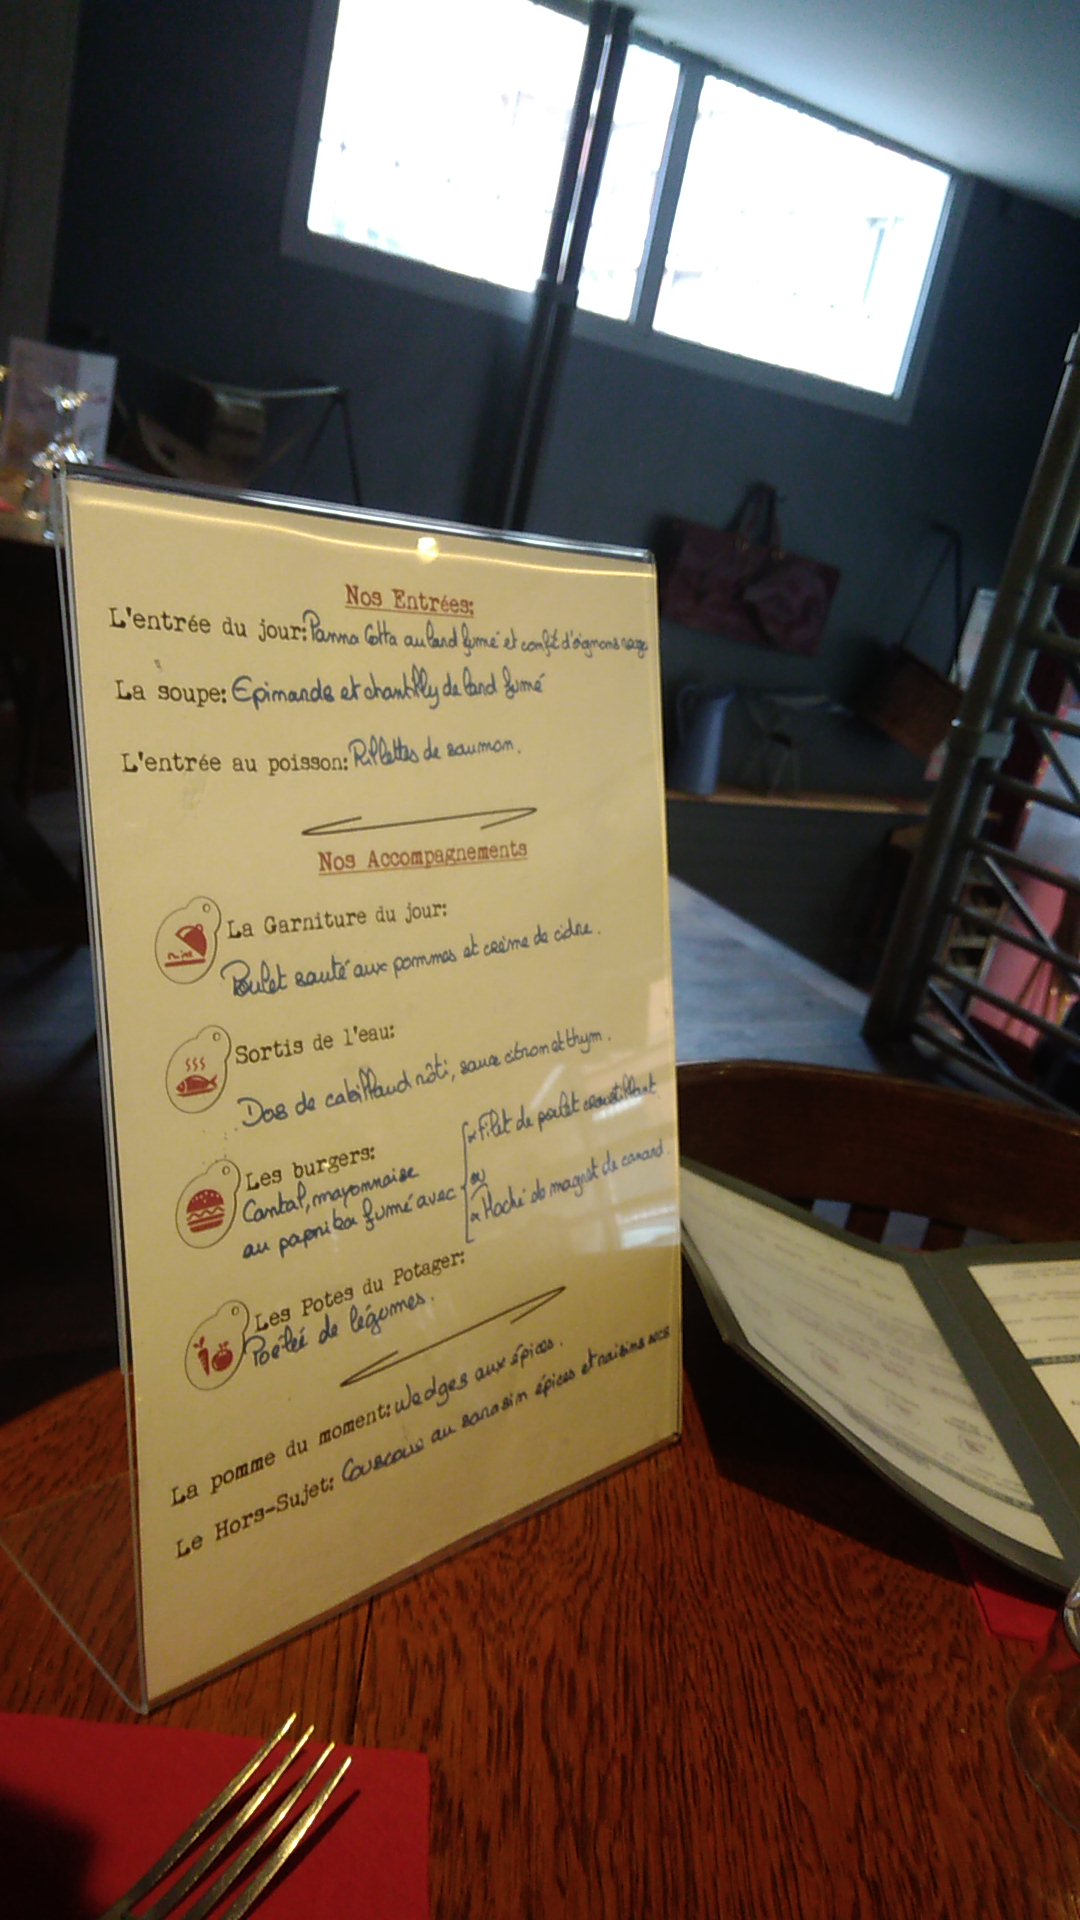 Nos Entrées:
L'entrée du jour: Panna Cotta au lard fumé et confit d'oignons rouge
La soupe: Epinards et chantilly de lard fumé
L'entrée au poisson: Rillettes de saumon.
Nos Accompagnements
La Garniture du jour:
Poulet sauté aux pommes et crème de cidre.
Sortis de l'eau:
Dos de cabillaud rôti, sauce citron et thym.
Les burgers:
Cantal, mayonnaise
au paprika fumé avec
Filet de poulet croustillant
ou
Haché de magret de canard.
Les Potes du Potager:
Poêlée de légumes.
La pomme du moment: Wedges aux épices.
Le Hors-Sujet: Couscous au sarasin épices et raisins secs